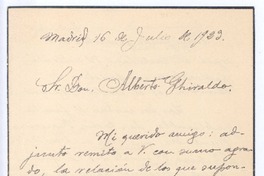 Madrid 16 de Julio de 1933.
Sr. Don Alberto Ghiraldo.
Mi querido amigo: ad-
junto remito a V. con sumo agra-
do, la relación de los que suspon-